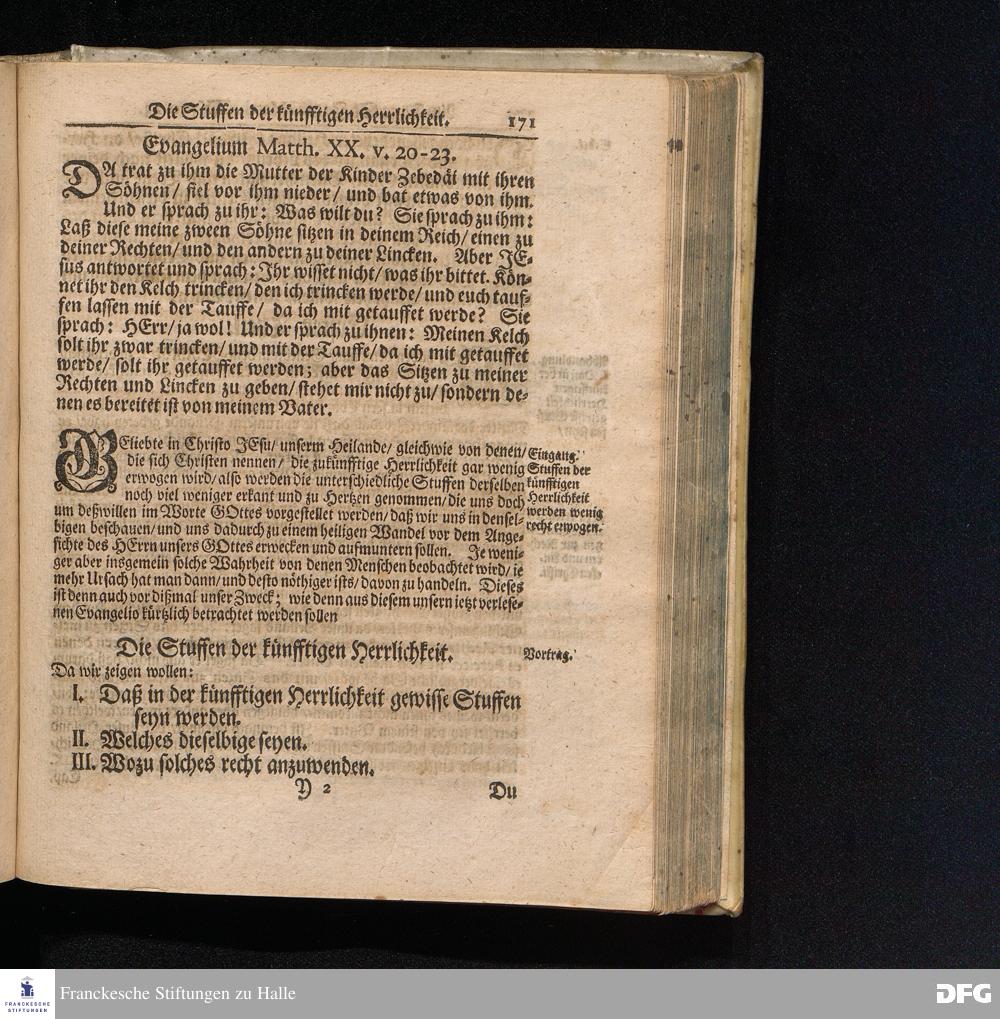 Die Stuffen der künfftigen Herrlichkeit. 171
Evangelium Matth. XX. v. 20-23.
DA trat zu ihm die Mutter der Kinder Zebedäi mit ihren
Söhnen/ fiel vor ihm nieder/ und bat etwas von ihm.
Und er sprach zu ihr: Was wilt du? Sie sprach zu ihm:
Laß diese meine zween Söhne sitzen in deinem Reich/ einen zu
deiner Rechten/ und den andern zu deiner Lincken. Aber JE-
sus antwortet und sprach: Ihr wisset nicht/ was ihr bittet. Kön-
net ihr den Kelch trincken/ den ich trincken werde/ und euch tauf-
fen lassen mit der Tauffe/ da ich mit getauffet werde? Sie
sprach: HErr/ ja wol! Und er sprach zu ihnen: Meinen Kelch
solt ihr zwar trincken/ und mit der Tauffe/ da ich mit getauffet
werde/ solt ihr getauffet werden; aber das Sitzen zu meiner
Rechten und Lincken zu geben/ stehet mir nicht zu/ sondern de-
nen es bereitet ist von meinem Vater.
GEliebte in Christo JEsu/ unserm Heilande/ gleichwie von denen/
die sich Christen nennen/ die zukünfftige Herrlichkeit gar wenig
erwogen wird/ also werden die unterschiedliche Stuffen derselben
noch viel weniger erkant und zu Hertzen genommen/ die uns doch
um deßwillen im Worte GOttes vorgestellet werden/ daß wir uns in densel-
bigen beschauen/ und uns dadurch zu einem heiligen Wandel vor dem Ange-
sichte des HErrn unsers GOttes erwecken und aufmuntern sollen. Je weni-
ger aber insgemein solche Wahrheit von denen Menschen beobachtet wird/ je
mehr Ursach hat man dann/ und desto nöthiger ists/ davon zu handeln. Dieses
ist denn auch vor dißmal unser Zweck; wie denn aus diesem unsern ietzt verlese-
nen Evangelio kürtzlich betrachtet werden sollen
Eingang.
Stuffen der
künfftigen
Herrlichkeit
werden wenig
recht erwogen.
Die Stuffen der künfftigen Herrlichkeit.
Vortrag.
Da wir zeigen wollen:
I. Daß in der künfftigen Herrlichkeit gewisse Stuffen
seyn werden.
II. Welches dieselbige seyen.
III. Wozu solches recht anzuwenden.
Y 2 Du
FRANCKESCHE
STIFTUNGEN
Franckesche Stiftungen zu Halle
DFG